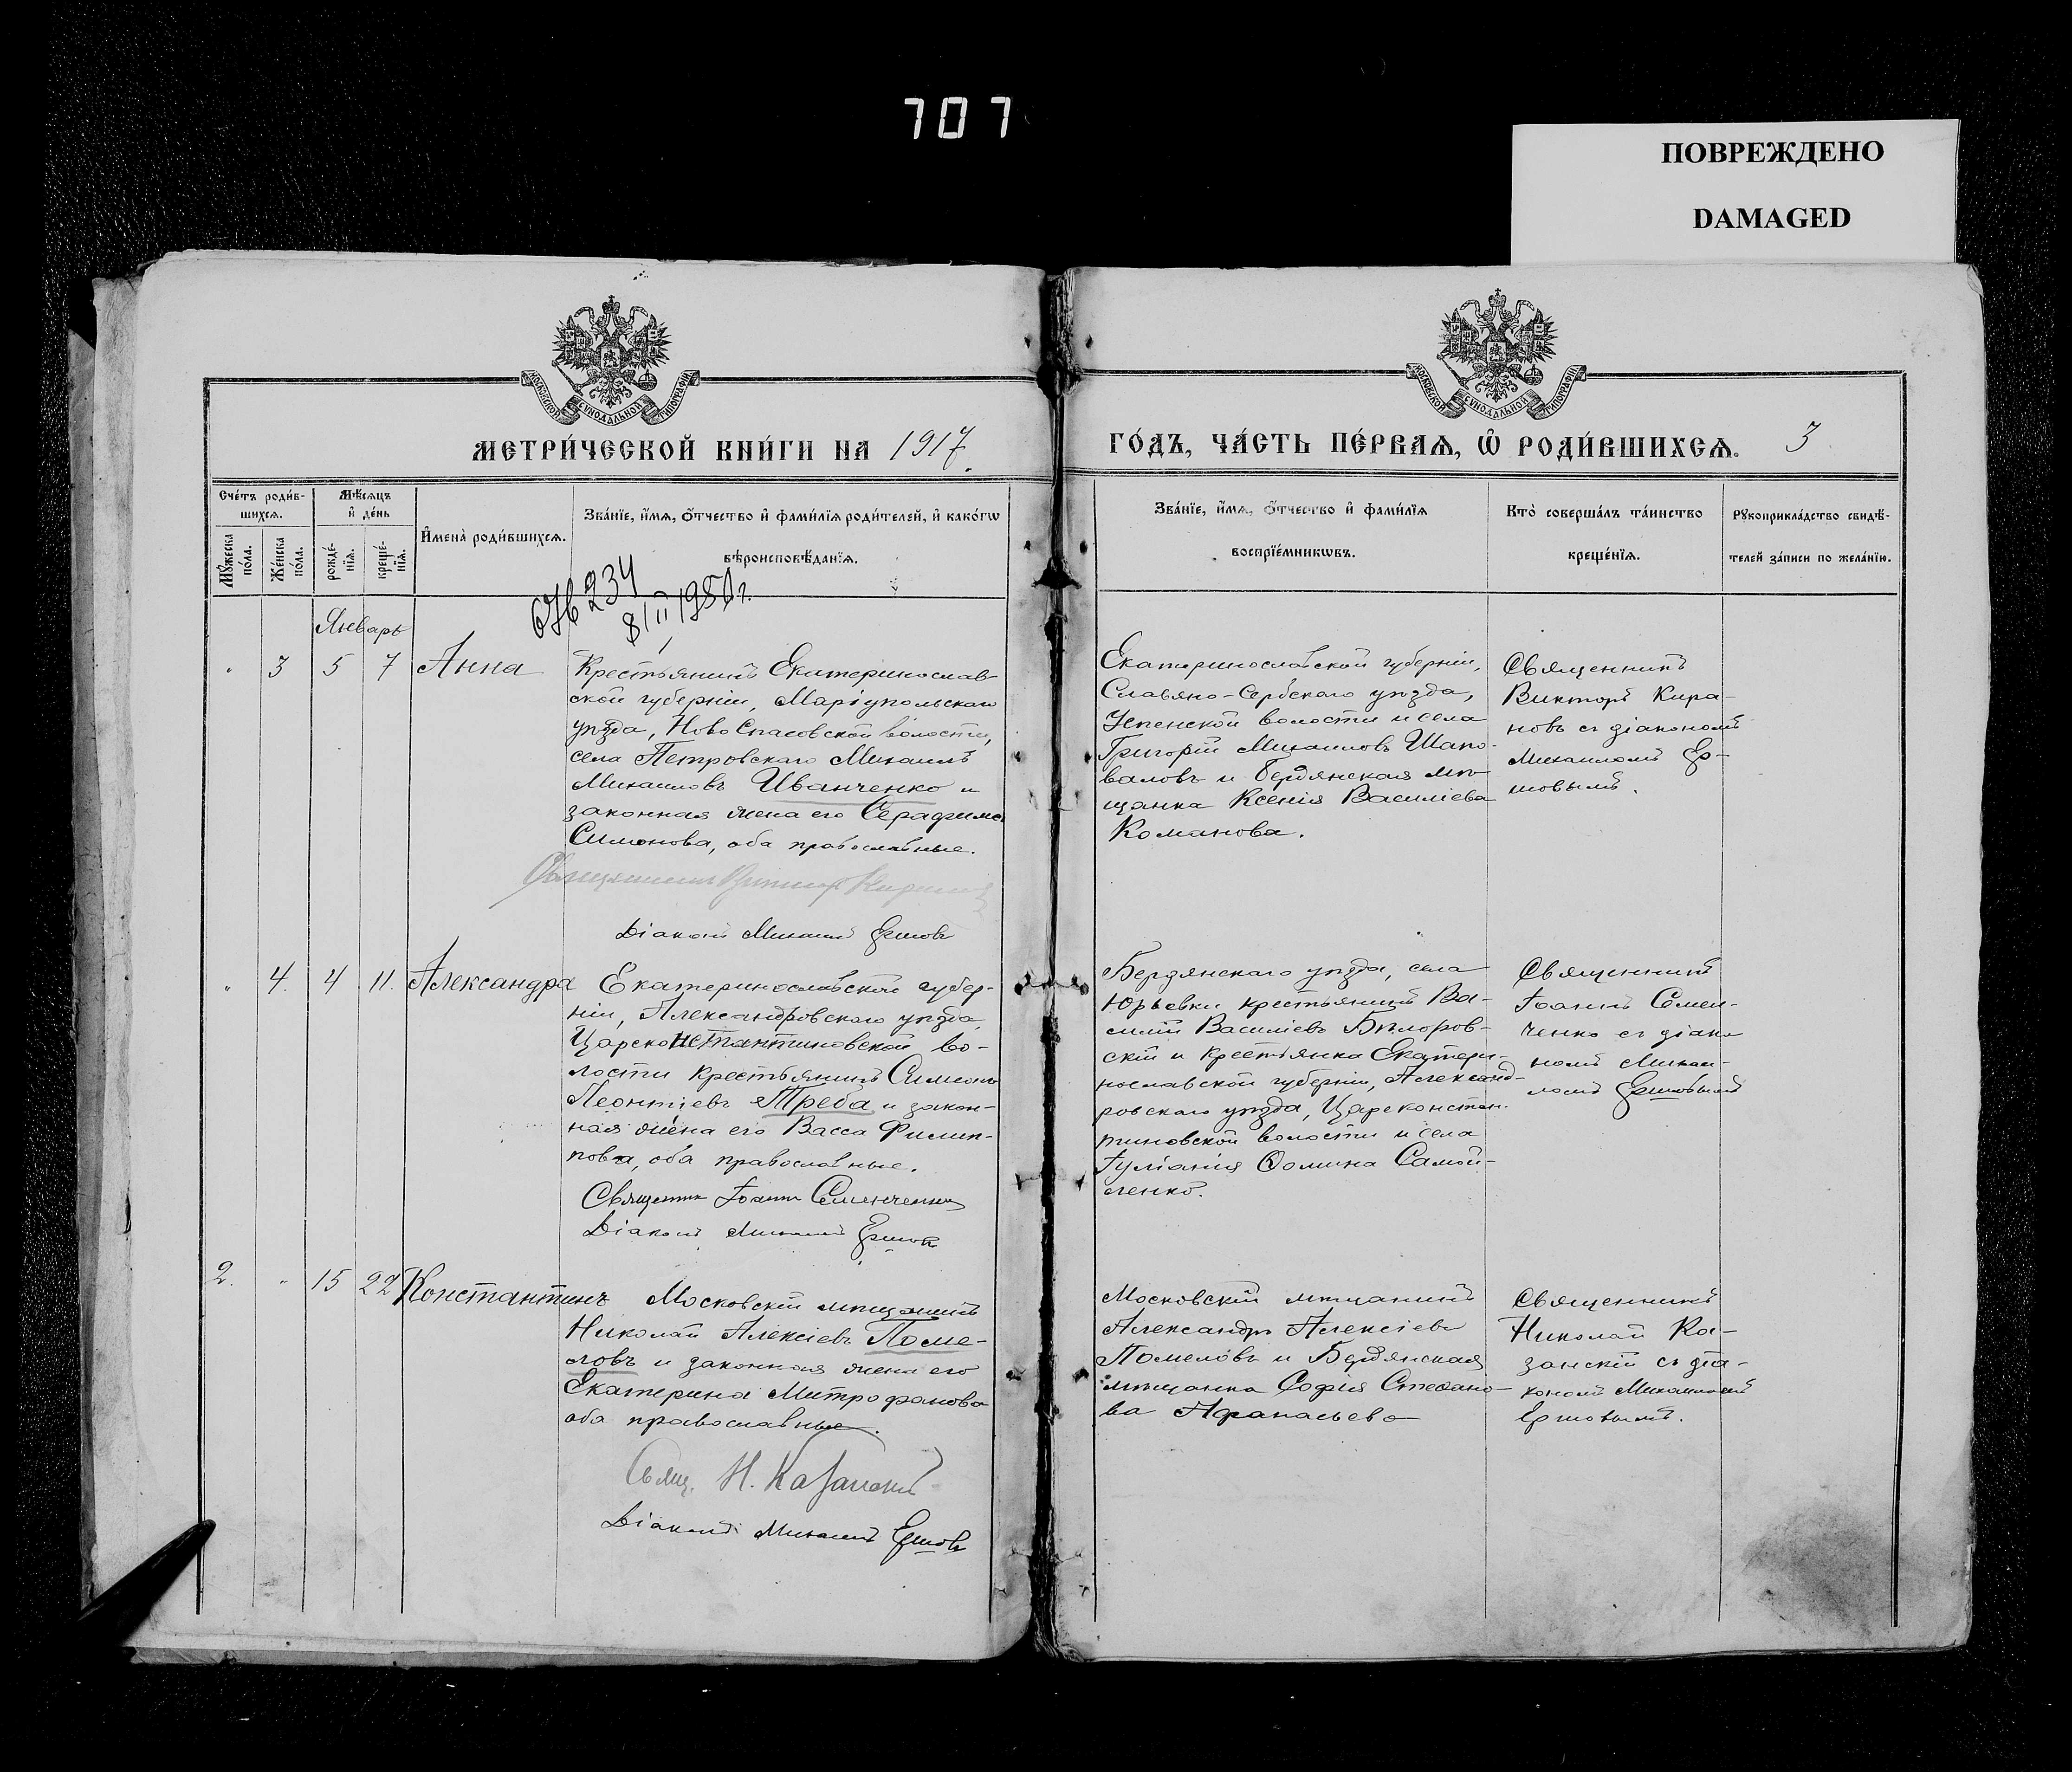 707
ПОВРЕЖДЕНО
DAMAGED
МОСКОВСКОЙ СѴНОДАЛЬНОЙ ТИПОГРАФІИ
МОСКОВСКОЙ СѴНОДАЛЬНОЙ ТИПОГРАФІИ
МЕТРИ́ЧЕСКОЙ КНИ́ГИ НА 1917
ГО́ДЪ, ЧА́СТЬ ПЕ́РВАѦ, Ѡ РОДИ́ВШИХСѦ. 3
Сче́тъ роди́в-
шихсѧ.
Мꙋ́жеска по́ла.
Же́нска по́ла.
Мѣ́сѧцъ
и де́нь
рожде́-нїѧ.
креще́-нїѧ.
Имена̀ роди́вшихсѧ.
Зва́нїе, и́мѧ, ѻ́тчество и фами́лїѧ роди́телей, и како́гѡ
вѣроисповѣ́данїѧ.
Зва́нїе, и́мѧ, ѻ́тчество и фами́лїѧ
воспрїе́мникѡвъ.
Кто̀ соверша́лъ та́инство
креще́нїѧ.
Рꙋкоприкла́дство свидѣ́-
телей за́писи по жела́нїю.
234
8/II 195 г.
Январь
" 3 5 7 Анна
Крестьянинъ Екатеринослав-
ской губерніи, Маріупольскаго
уѣзда, НовоСпасовской волости,
села Петровскаго Михаилъ
Михаиловъ Иванченко и
законная жена его Серафима
Симонова, оба православные.
Священникъ Викторъ Кирановъ
Діаконъ Михаилъ Ершовъ
Екатеринославской губерніи,
Славяно-Сербскаго уѣзда,
Успенской волости и села
Григорій Михаиловъ Шапо-
валовъ и Бердянская мѣ-
щанка Ксенія Василіева
Команова.
Священникъ
Викторъ Кира-
новъ съ діакономъ
Михаиломъ Ер-
шовымъ.
" 4. 4 11. Александра
Екатеринославской губер-
ніи, Александровскаго уѣзда,
Царсконстантиновской во-
лости крестьянинъ Симеонъ
Леонтіевъ Треба и закон-
ная жена его Васса Филип-
пова, оба православные.
Священник Іоаннъ Семенченко
Діаконъ Михаилъ Ершовъ
Бердянскаго уѣзда, села
Юрьевки крестьянинъ Ва-
силій Василіевъ Бѣлоров-
скій и крестьянка Екатери-
нославской губерніи, Александ-
ровскаго уѣзда, Цареконстан-
тиновской волости и села
Іуліанія Ѳомина Самой-
ленко.
Священникъ
Іоаннъ Семен-
ченко съ діако
номъ Михаи-
ломъ Ершовымъ
2. " 15 22 Константинъ
Московскій мѣщанинъ
Николай Алексіевъ Поме-
ловъ и законная жена его
Екатерина Митрофанова
оба православные.
Свящ. Н. Казанскій
Діаконъ Михаилъ Ершовъ
Московскій мѣщанинъ
Александръ Алексіевъ
Помеловъ и Бердянская
мѣщанка Софія Стефано-
ва Афанасьева
Священникъ
Николай Ка-
занскій съ діа-
кономъ Михаиломъ
Ершовымъ.